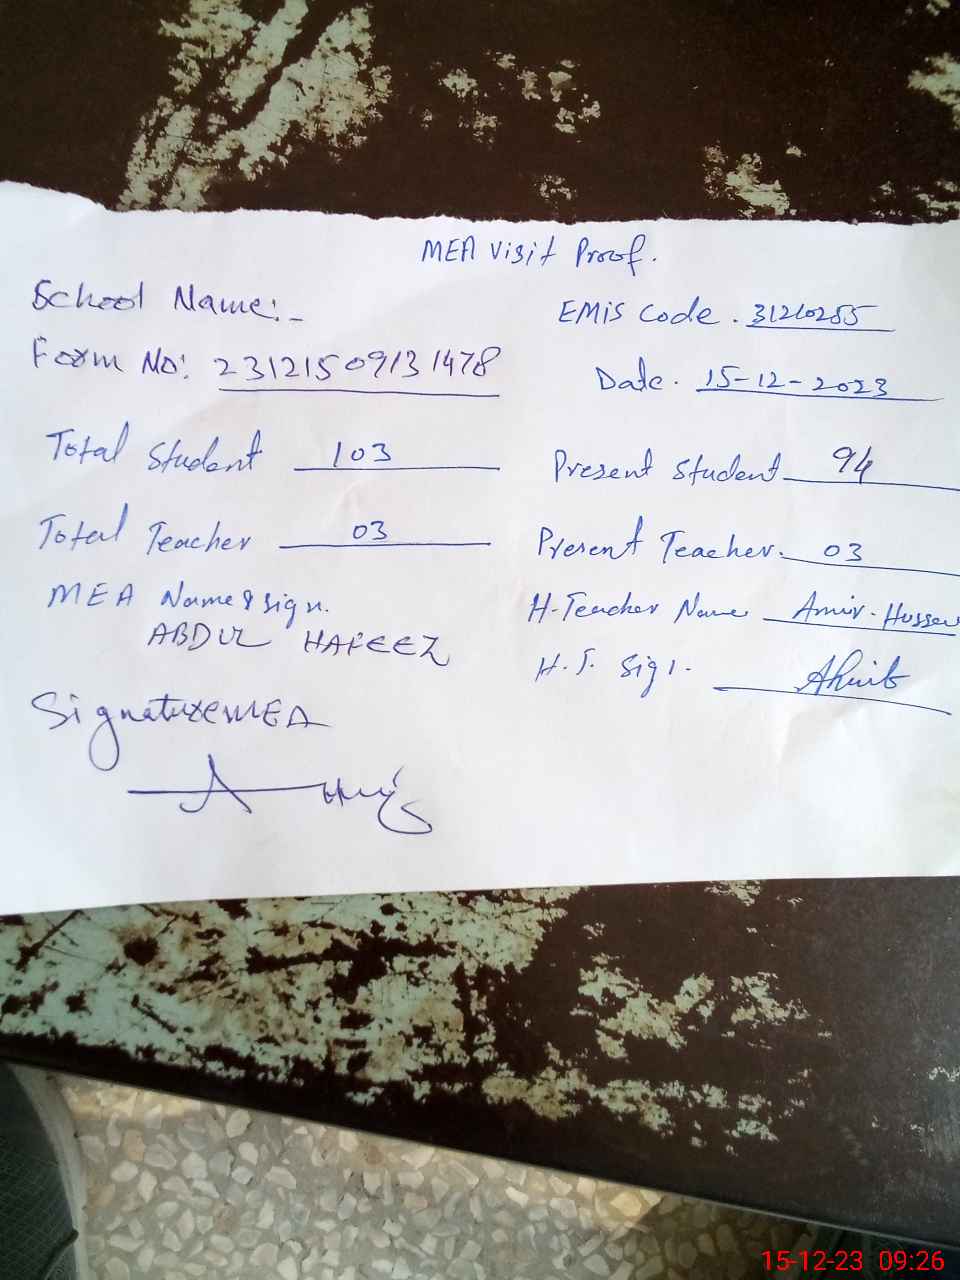 MEA Visit Proof.
School Name:-
EMIS Code. 31210255
Form No: 23121509131478
Date. 15-12-2023
Total Student 103
Present Student 94
Total Teacher 03
Present Teacher. 03
MEA Name & sign.
ABDUL HAFEEZ
H-Teacher Name Amir-Hussain
H.T. Sign.
Signature MEA
15-12-23 09:26